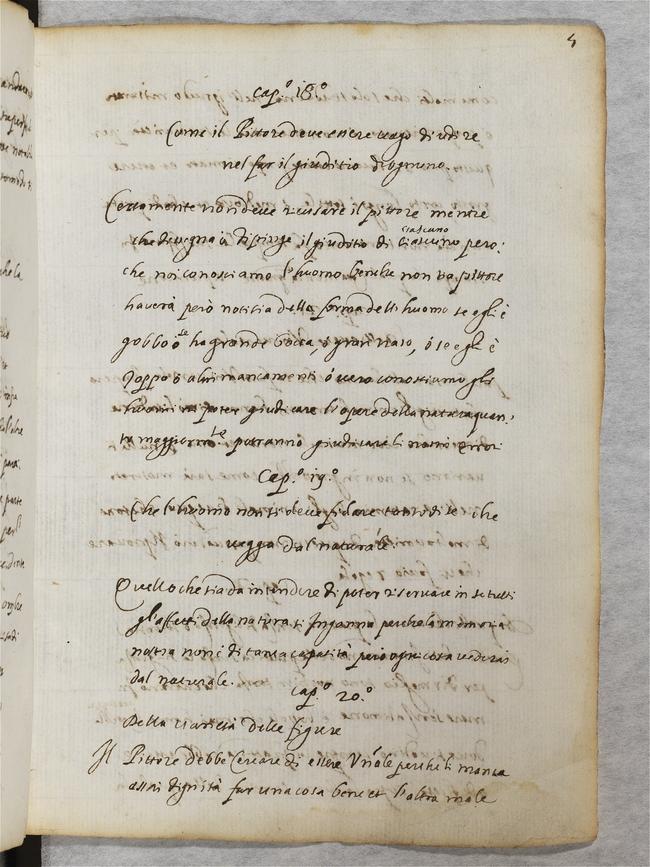 4
Cap.º 18.º
Come il Pittore deve essere vago di udire
nel far il giuditio di ognuno.
Certamente non deve recusare il pittore mentre
che disegna ò dipinge il giuditio di ciascuno
ciascuno però:
che noi conosciamo l'huomo benche non sia pittore
haverà però notitia della forma dell'huomo se egli è
gobbo ò se ha grande bocca, ò gran naso, ò se egli è
zoppo ò altri mancamenti ò vero conosciamo gli
huomini poter giudicare l'opere della natura quan,
to maggiorm.te potranno giudicare li nostri errori
Cap.º 19.º
Che l'huomo non si deve fidare tanto di se che
vegga dal naturale.
Quello che si da intendere di poter riservare in se tutti
gl'affetti della natura si Inganna perche la memoria
nostra non è di tanta capacità però ogni cosa vedrai
dal naturale.
Cap.º 20.º
Della varietà delle figure
Il Pittore debbe cercare di essere Vn'ole perche li manca
assai dignità far una cosa bene et l'altra male